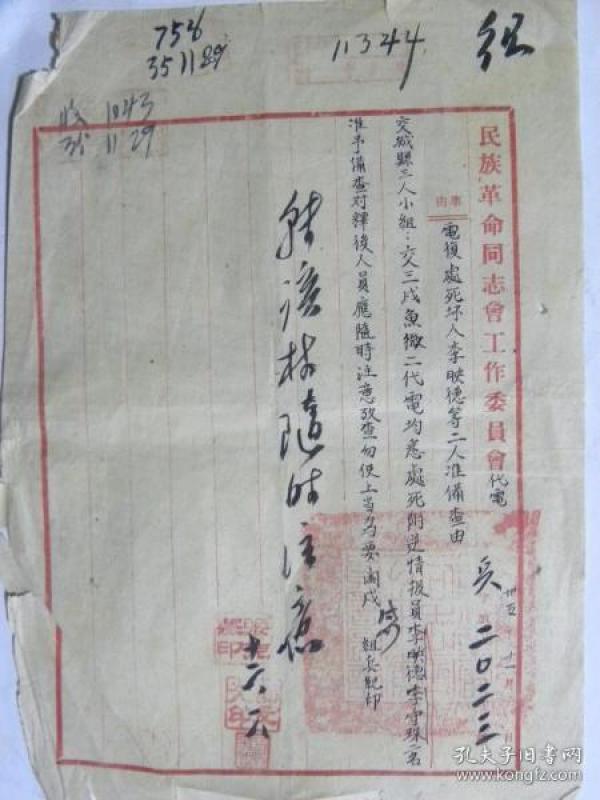 组
11344
754
351189
收 1043
35 11 29
民族革命同志會工作委員會代電
事由
電復處死坏人李映德等二人准備查由
兵
二〇二三
交城縣三人小組：交三戌魚微二代電均悉處死附逆情报員李映德李雪珠二名
准予備查对釋後人員應隨時注意攷查勿使上当为要閻戌 組兵紀印
隨时注意
十六
孔夫子旧书网
www.kongfz.com